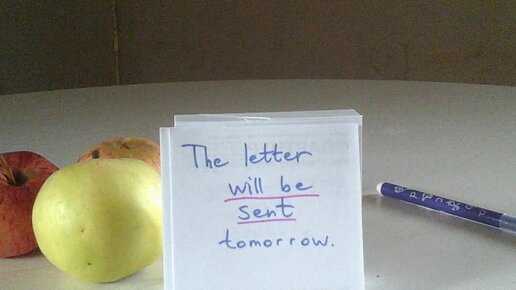 The letter
will be
sent
tomorrow.